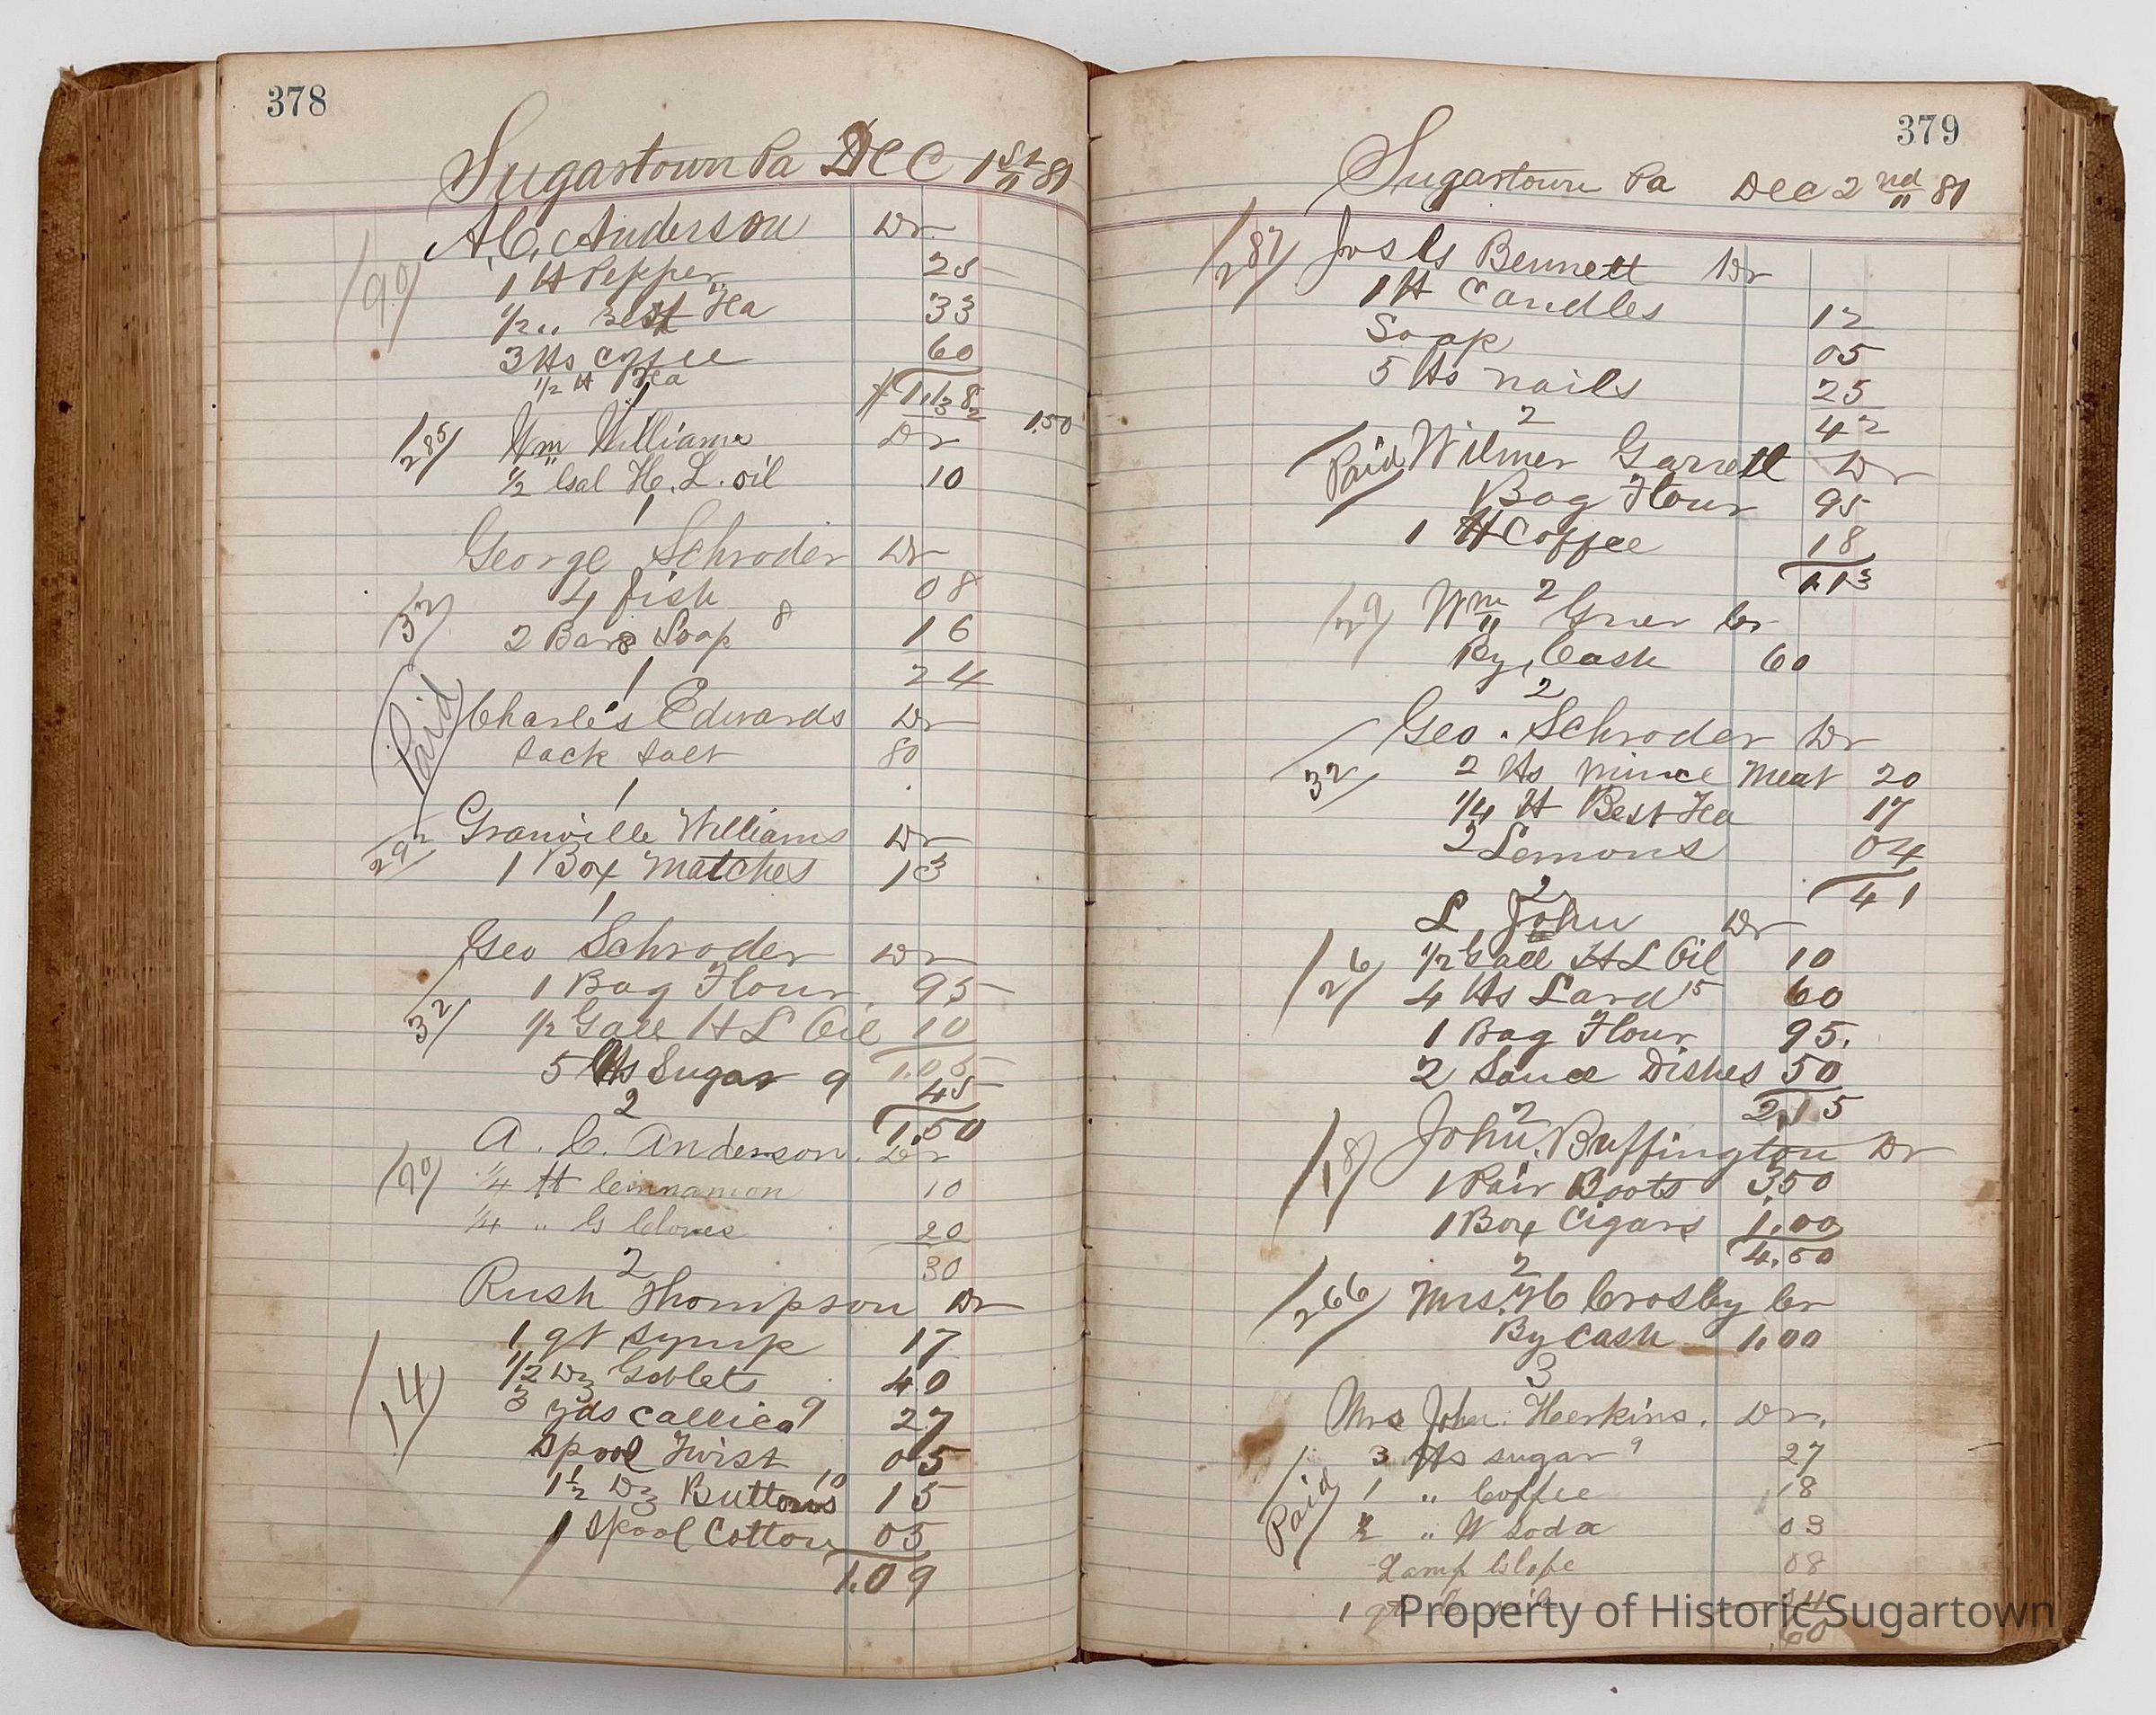 378
Sugartown Pa Dec 1st 81
A. C. Anderson Dr
1 lb Pepper 25
1/2 " Best Tea 33
3 lbs Coffee 60
1/2 lb Tea
1
285 Wm Williams Dr 1.50
1/2 Gal H. L. oil 10
1
George Schroder Dr
4 fish 08
32 2 Bars Soap 8 16
1 24
Paid Charles Edwards Dr
Sack Salt 80
1
292 Granville Williams Dr
1 Box Matches 13
1
Geo Schroder Dr
1 Bag Flour 95
32 1/2 Gall H L Oil 10
1.05
5 lbs Sugar 9 45
2 1.50
A. C. Anderson Dr
1/4 lb Cinnamon 10
1/4 " G Cloves 20
2 30
Rush Thompson Dr
1 qt Syrup 17
1/2 Dz Goblets 40
14 3 yds Callico 9 27
Spool Twist 05
1 1/2 Dz Buttons 10 15
1 Spool Cotton 05
1.09
379
Sugartown Pa Dec 2nd 81
287 Bennett Dr
1 lb Candles 12
Soap 05
5 lbs nails 25
2 42
Paid Wilmer Garrett Dr
Bag Flour 95
1 lb Coffee 18
1.13
2
29 Wm Grier Cr
By Cash 60
2
Geo. Schroder Dr
32 2 lbs Mince Meat 20
1/4 lb Best Tea 17
2 Lemons 04
2 41
L John Dr
26 1/2 Gall H L Oil 10
4 lbs Lard 15 60
1 Bag Flour 95
2 Sauce Dishes 50
2 2.15
18 John Buffington Dr
1 Pair Boots 3.50
1 Box Cigars 1.00
2 4.50
266 Mrs. H Crosby Cr
By Cash 1.00
3
Mrs John Heerkins. Dr.
3 lbs sugar 9 27
Paid 1 " Coffee 18
" W Soda 03
Lamp 08
1
60
Property of Historic Sugartown